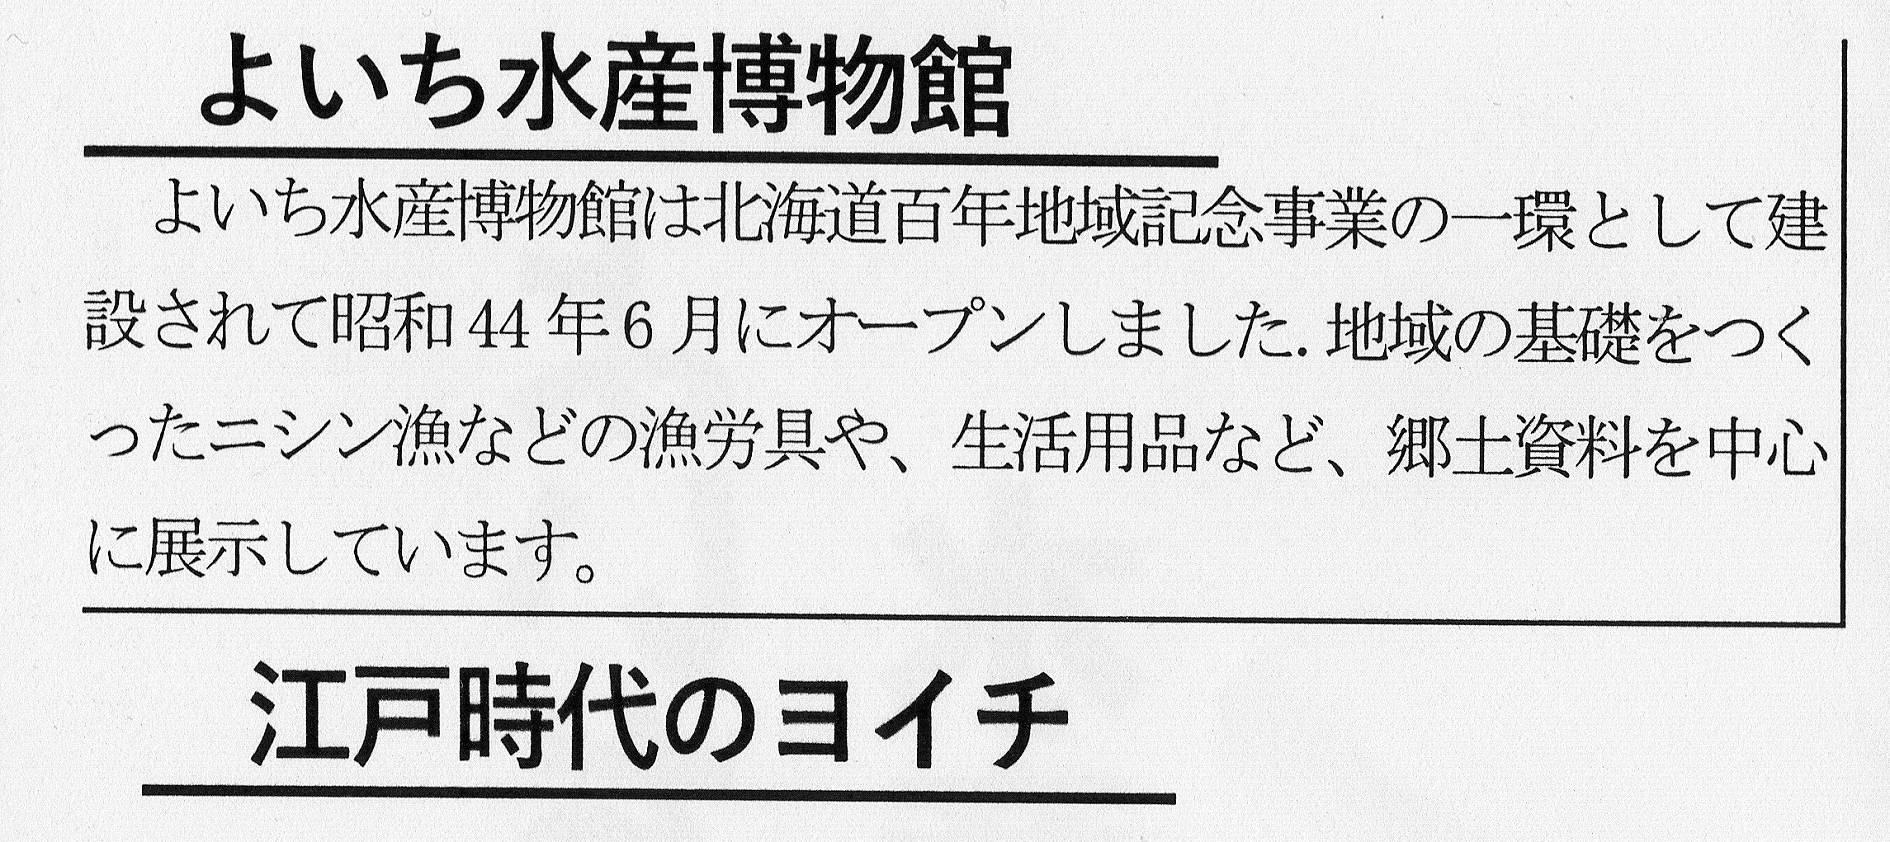 よいち水産博物館
よいち水産博物館は北海道百年地域記念事業の一環として建
設されて昭和44年6月にオープンしました.地域の基礎をつく
ったニシン漁などの漁労具や、生活用品など、郷土資料を中心
に展示しています。
江戸時代のヨイチ